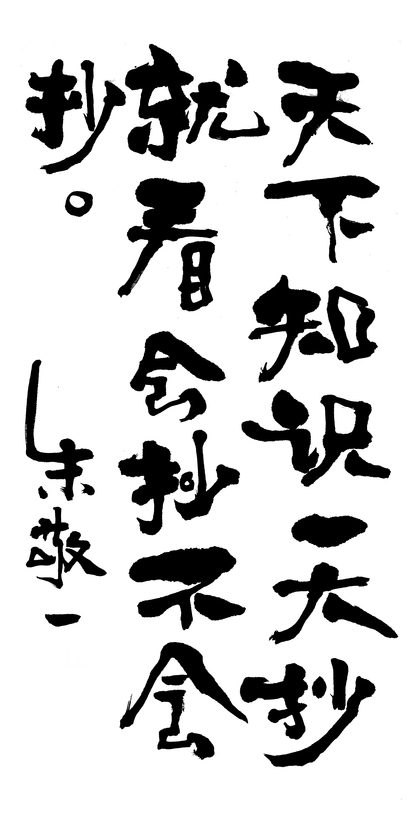 天下知识一大抄
就看会抄不会
抄。
朱敬一